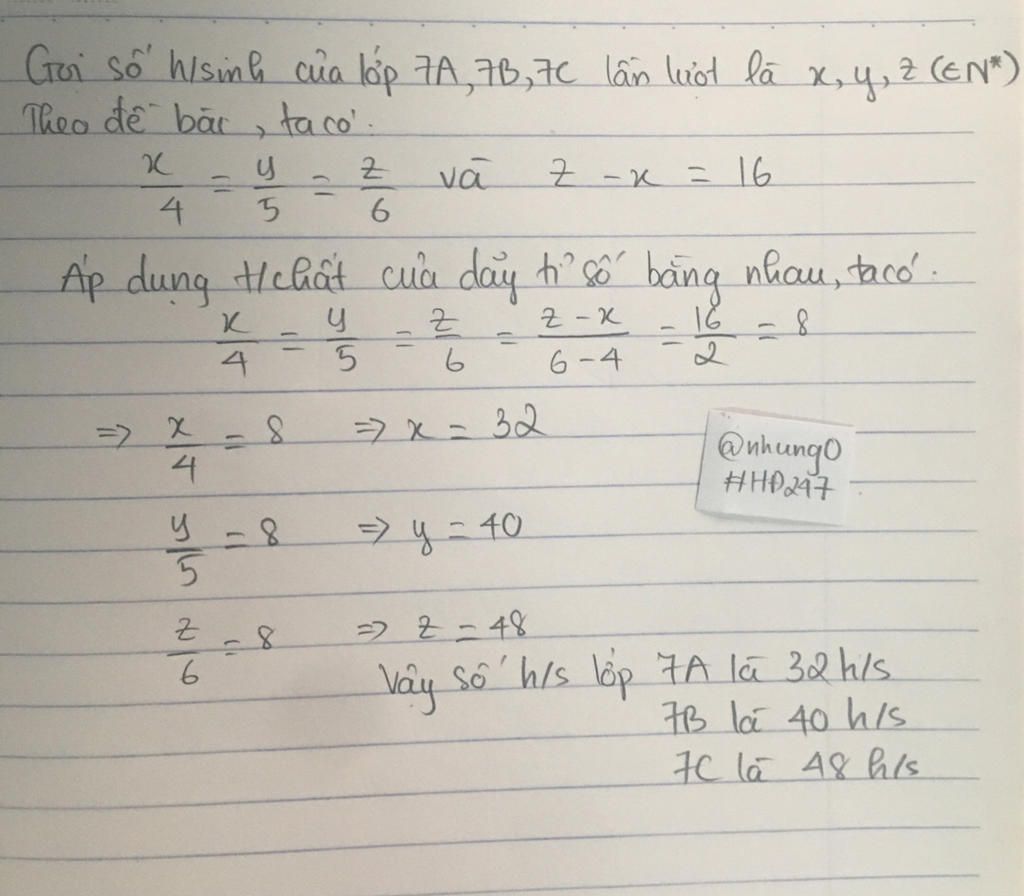 Gọi số h/sinh của lớp 7A, 7B, 7C lần lượt là x, y, z (∈N*)
Theo đề bài, ta có:
x/4 = y/5 = z/6 và z - x = 16
Áp dụng t/chất của dãy tỉ số bằng nhau, ta có:
x/4 = y/5 = z/6 = (z - x)/(6 - 4) = 16/2 = 8
=> x/4 = 8 => x = 32
@nhung0
#HĐ247
y/5 = 8 => y = 40
z/6 = 8 => z = 48
Vậy số h/s lớp 7A là 32 h/s
7B là 40 h/s
7C là 48 h/s